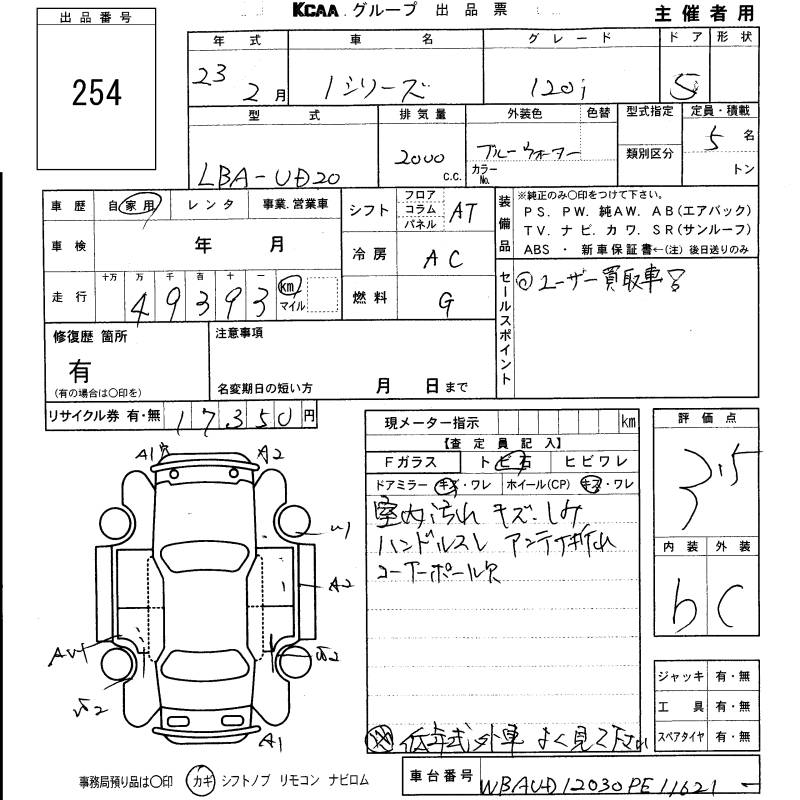 KCAA グループ 出品票
主催者用
出品番号
254
年式 車名 グレード ドア 形状
23 2月 1シリーズ 120i 5
型式 排気量 外装色 色替 型式指定 定員・積載
LBA-UD20 2000 c.c. ブルーウォーター カラーNo. 類別区分 5名 トン
車歴 自家用 レンタ 事業.営業車
シフト フロア コラム パネル AT
装備品 ※純正のみ〇印をつけて下さい。
PS. PW. 純AW. AB(エアバック)
TV. ナビ. カワ. SR(サンルーフ)
ABS ・ 新車保証書←(注) 後日送りのみ
車検 年 月
冷房 AC
走行 十万 万 千 百 十 一
49393 km マイル
燃料 G
セールスポイント ◎ユーザー買取車
修復歴 箇所
有
(有の場合は〇印を)
注意事項
名変期日の短い方 月 日まで
リサイクル券 有・無 17350円
現メーター指示 km
【査定員記入】
Fガラス トビ石 ヒビワレ
ドアミラー キズ・ワレ ホイール(CP) キズ・ワレ
室内汚れ キズ.シミ
ハンドルスレ アンテナ折れ
コーナーポール欠
低年式外車 よく見て下さい
評価点
3.5
内装 外装
b C
ジャッキ 有・無
工具 有・無
スペアタイヤ 有・無
A1 A2
A2
A1
事務局預り品は〇印 カギ シフトノブ リモコン ナビロム
車台番号 WBAUD12030PE11621